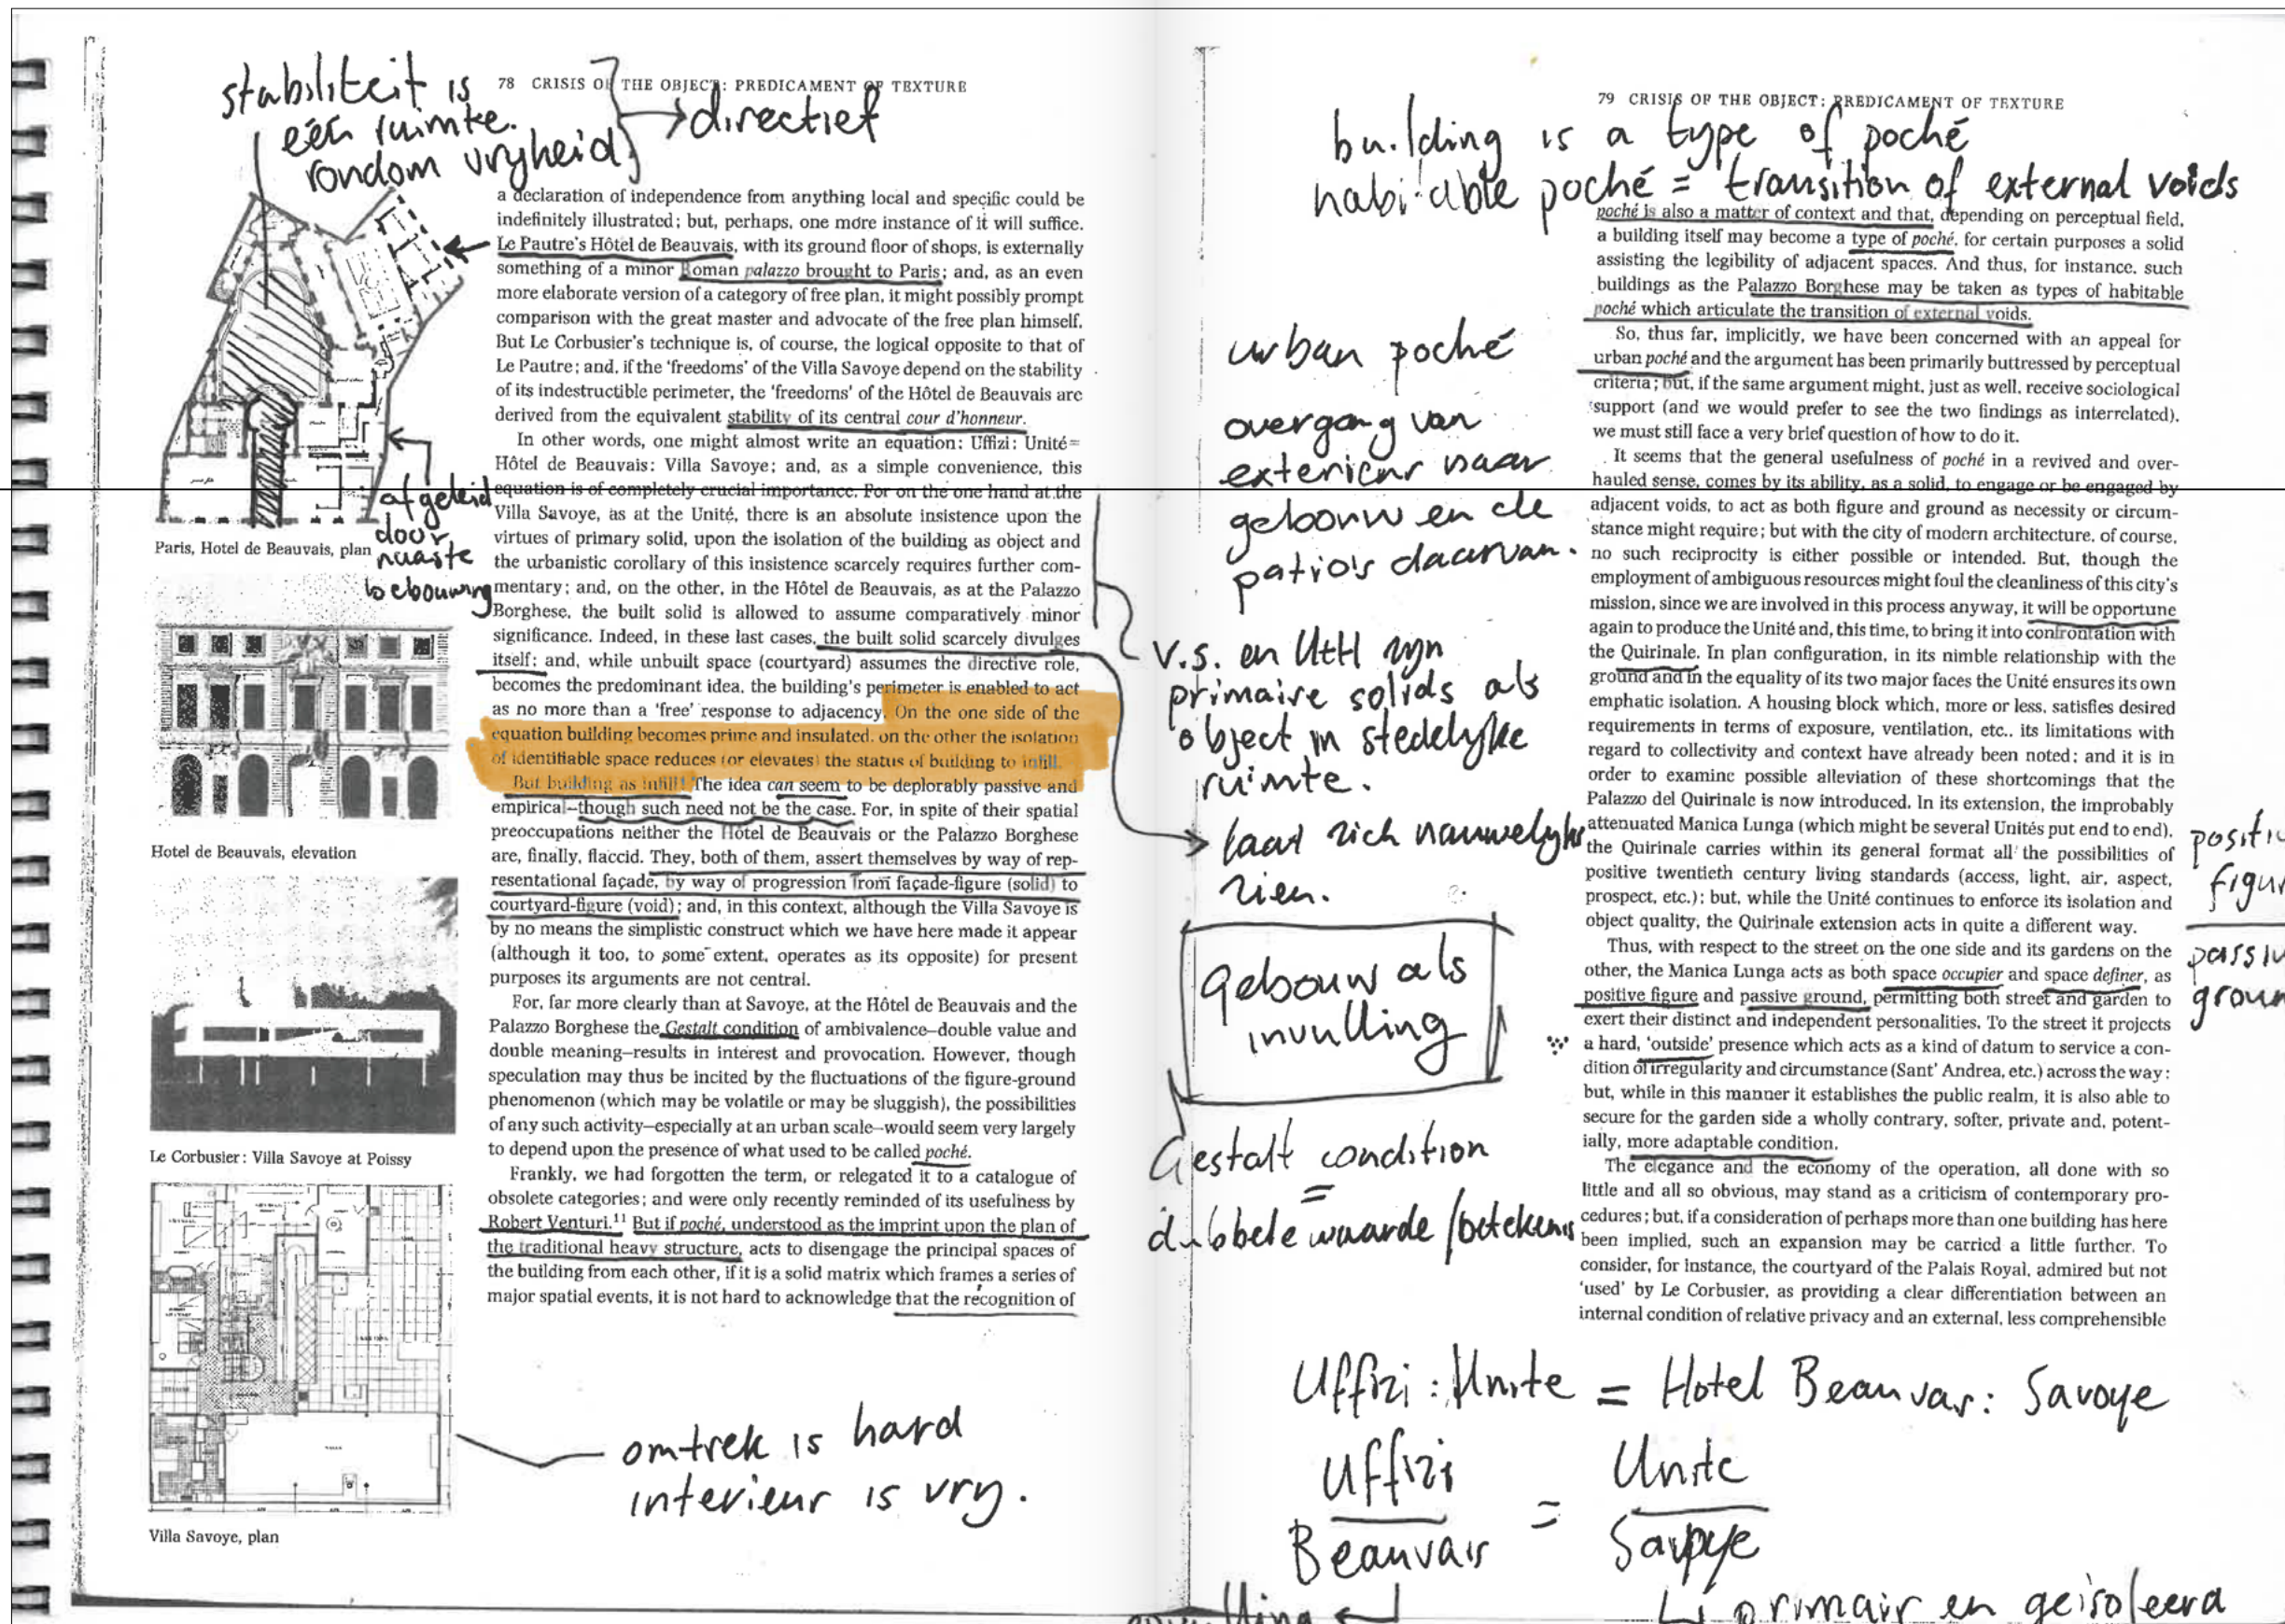 stabiliteit is
één ruimte.
rondom vryheid
directief
78 CRISIS OF THE OBJECT: PREDICAMENT OF TEXTURE
a declaration of independence from anything local and specific could be
indefinitely illustrated; but, perhaps, one more instance of it will suffice.
Le Pautre's Hôtel de Beauvais, with its ground floor of shops, is externally
something of a minor Roman palazzo brought to Paris; and, as an even
more elaborate version of a category of free plan, it might possibly prompt
comparison with the great master and advocate of the free plan himself.
But Le Corbusier's technique is, of course, the logical opposite to that of
Le Pautre; and, if the 'freedoms' of the Villa Savoye depend on the stability
of its indestructible perimeter, the 'freedoms' of the Hôtel de Beauvais are
derived from the equivalent stability of its central cour d'honneur.
In other words, one might almost write an equation: Uffizi: Unité=
Hôtel de Beauvais: Villa Savoye; and, as a simple convenience, this
equation is of completely crucial importance. For on the one hand at the
Villa Savoye, as at the Unité, there is an absolute insistence upon the
virtues of primary solid, upon the isolation of the building as object and
the urbanistic corollary of this insistence scarcely requires further com-
mentary; and, on the other, in the Hôtel de Beauvais, as at the Palazzo
Borghese, the built solid is allowed to assume comparatively minor
significance. Indeed, in these last cases, the built solid scarcely divulges
itself; and, while unbuilt space (courtyard) assumes the directive role,
becomes the predominant idea, the building's perimeter is enabled to act
as no more than a 'free' response to adjacency. On the one side of the
equation building becomes prime and insulated, on the other the isolation
of identifiable space reduces (or elevates) the status of building to infill.
But building as infill! The idea can seem to be deplorably passive and
empirical—though such need not be the case. For, in spite of their spatial
preoccupations neither the Hôtel de Beauvais or the Palazzo Borghese
are, finally, flaccid. They, both of them, assert themselves by way of rep-
resentational façade, by way of progression from façade-figure (solid) to
courtyard-figure (void); and, in this context, although the Villa Savoye is
by no means the simplistic construct which we have here made it appear
(although it too, to some extent, operates as its opposite) for present
purposes its arguments are not central.
For, far more clearly than at Savoye, at the Hôtel de Beauvais and the
Palazzo Borghese the Gestalt condition of ambivalence—double value and
double meaning—results in interest and provocation. However, though
speculation may thus be incited by the fluctuations of the figure-ground
phenomenon (which may be volatile or may be sluggish), the possibilities
of any such activity—especially at an urban scale—would seem very largely
to depend upon the presence of what used to be called poché.
Frankly, we had forgotten the term, or relegated it to a catalogue of
obsolete categories; and were only recently reminded of its usefulness by
Robert Venturi.11 But if poché, understood as the imprint upon the plan of
the traditional heavy structure, acts to disengage the principal spaces of
the building from each other, if it is a solid matrix which frames a series of
major spatial events, it is not hard to acknowledge that the recognition of
afgeleid
door
naaste
bebouwing
Paris, Hotel de Beauvais, plan
Hotel de Beauvais, elevation
Le Corbusier: Villa Savoye at Poissy
Villa Savoye, plan
omtrek is hard
interieur is vry.
79 CRISIS OF THE OBJECT: PREDICAMENT OF TEXTURE
building is a type of poché
habitable poché = transition of external voids
poché is also a matter of context and that, depending on perceptual field,
a building itself may become a type of poché, for certain purposes a solid
assisting the legibility of adjacent spaces. And thus, for instance, such
buildings as the Palazzo Borghese may be taken as types of habitable
poché which articulate the transition of external voids.
So, thus far, implicitly, we have been concerned with an appeal for
urban poché and the argument has been primarily buttressed by perceptual
criteria; but, if the same argument might, just as well, receive sociological
support (and we would prefer to see the two findings as interrelated),
we must still face a very brief question of how to do it.
It seems that the general usefulness of poché in a revived and over-
hauled sense, comes by its ability, as a solid, to engage or be engaged by
adjacent voids, to act as both figure and ground as necessity or circum-
stance might require; but with the city of modern architecture, of course,
no such reciprocity is either possible or intended. But, though the
employment of ambiguous resources might foul the cleanliness of this city's
mission, since we are involved in this process anyway, it will be opportune
again to produce the Unité and, this time, to bring it into confrontation with
the Quirinale. In plan configuration, in its nimble relationship with the
ground and in the equality of its two major faces the Unité ensures its own
emphatic isolation. A housing block which, more or less, satisfies desired
requirements in terms of exposure, ventilation, etc., its limitations with
regard to collectivity and context have already been noted; and it is in
order to examine possible alleviation of these shortcomings that the
Palazzo del Quirinale is now introduced. In its extension, the improbably
attenuated Manica Lunga (which might be several Unités put end to end),
the Quirinale carries within its general format all the possibilities of
positive twentieth century living standards (access, light, air, aspect,
prospect, etc.); but, while the Unité continues to enforce its isolation and
object quality, the Quirinale extension acts in quite a different way.
Thus, with respect to the street on the one side and its gardens on the
other, the Manica Lunga acts as both space occupier and space definer, as
positive figure and passive ground, permitting both street and garden to
exert their distinct and independent personalities. To the street it projects
a hard, 'outside' presence which acts as a kind of datum to service a con-
dition of irregularity and circumstance (Sant' Andrea, etc.) across the way;
but, while in this manner it establishes the public realm, it is also able to
secure for the garden side a wholly contrary, softer, private and, potent-
ially, more adaptable condition.
The elegance and the economy of the operation, all done with so
little and all so obvious, may stand as a criticism of contemporary pro-
cedures; but, if a consideration of perhaps more than one building has here
been implied, such an expansion may be carried a little further. To
consider, for instance, the courtyard of the Palais Royal, admired but not
'used' by Le Corbusier, as providing a clear differentiation between an
internal condition of relative privacy and an external, less comprehensible
urban poché
overgang van
exterieur naar
gebouw en de
patio's daarvan.
v.s. en UtH zyn
primaire solids als
object in stedelyke
ruimte.
laat zich nauwelyks
zien.
gebouw als
invulling
Gestalt condition
=
dubbele waarde/betekenis
positiv
figur
passiv
groun
Uffizi : Unite = Hotel Beauvais : Savoye
Uffizi = Unite
Beauvais Savoye
primair en geisoleerd